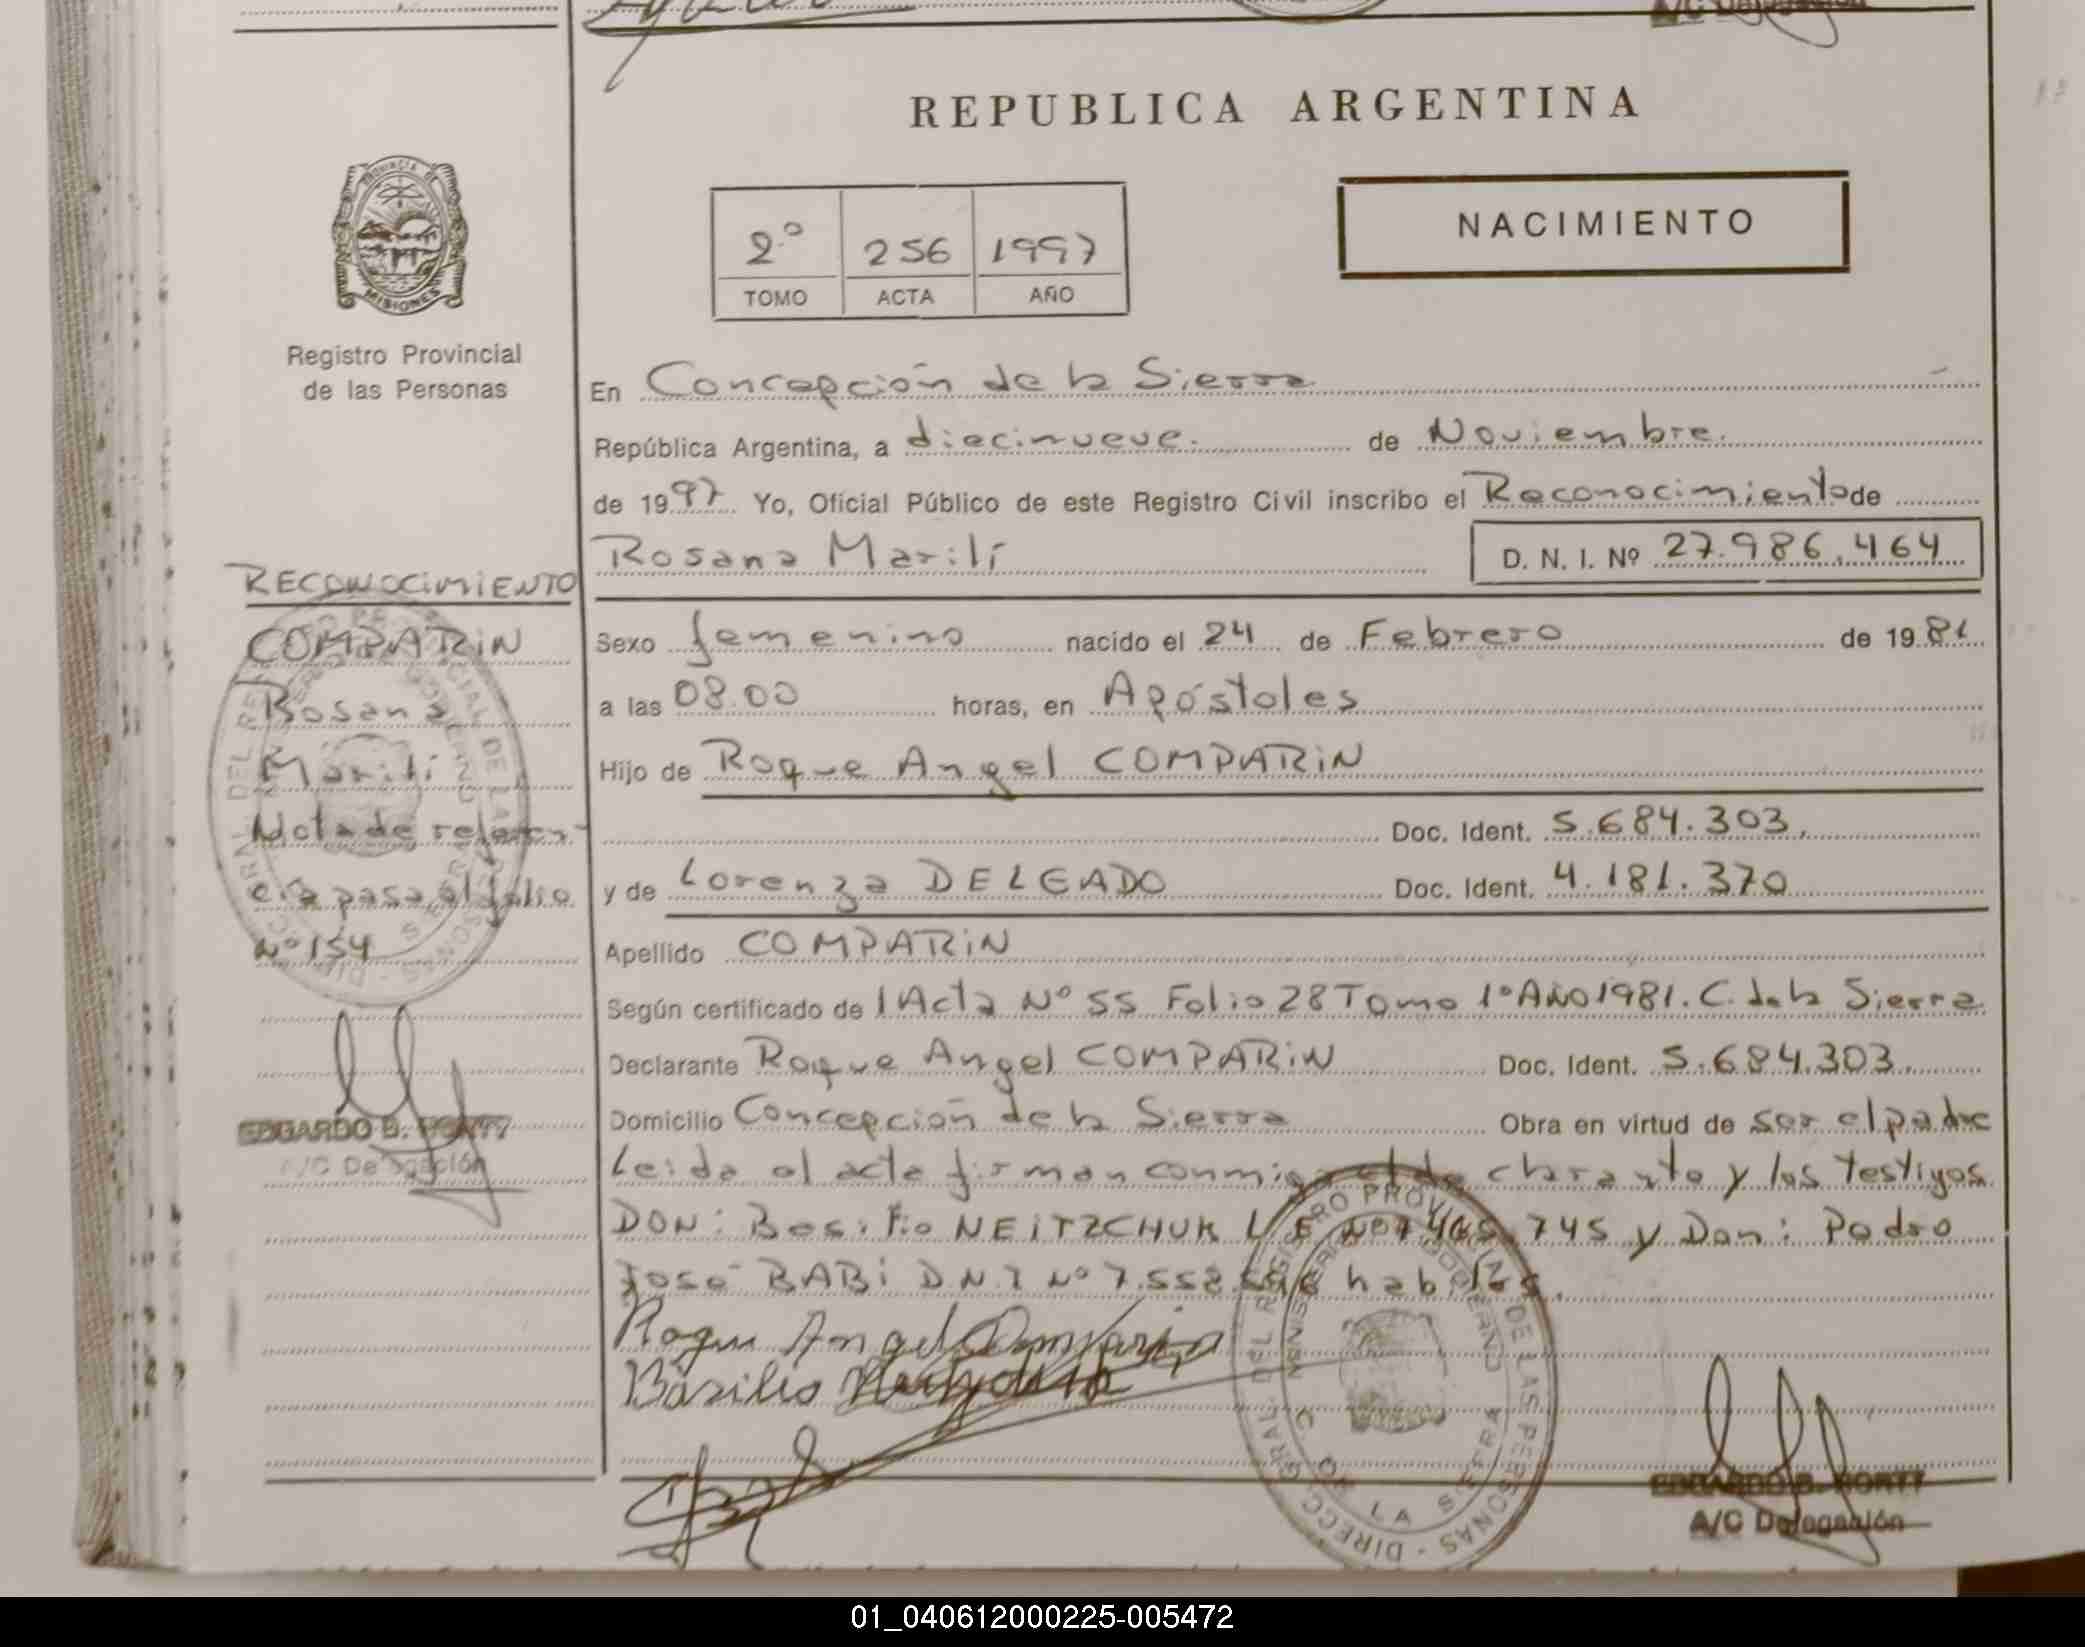 REPUBLICA ARGENTINA
PROVINCIA DE MISIONES
Registro Provincial
de las Personas
2º 256 1997
TOMO ACTA AÑO
NACIMIENTO
En Concepción de la Sierra
República Argentina, a diecinueve. de Noviembre.
de 1997 Yo, Oficial Público de este Registro Civil inscribo el Reconocimiento de
Rosana Marilí D. N. I. Nº 27.986.464
Sexo femenino nacido el 24 de Febrero de 1981
a las 08.00 horas, en Apóstoles
Hijo de Roque Angel COMPARiN
Doc. Ident. 5.684.303.
y de Lorenza DELGADO Doc. Ident. 4.181.370
Apellido COMPARiN
Según certificado de l Acta Nº 55 Folio 28 Tomo 1º AÑO 1981. C. de la Sierra
Declarante Roque Angel COMPARiN Doc. Ident. 5.684.303.
Domicilio Concepción de la Sierra Obra en virtud de ser el padre
Leida el acta firman conmigo el declarante y los testigos
DON: Basilio NEiTZCHUK L E Nº 7.465.745 y Don: Pedro
José BABi D.N.I Nº 7.558. habiles.
Roque Angel Comparin
Basilio
RECONOCiMiENTO
COMPARiN
Rosana
Marilí
Nota de referen-
cia pasa al folio
Nº 154
EDGARDO B.
A/C Delegación
DIRECC. GRAL. DEL REGISTRO PROVINCIAL DE LAS PERSONAS
MINISTERIO GOBIERNO
C. DE LA SIERRA
EDGARDO B.
A/C Delegación
01_040612000225-005472